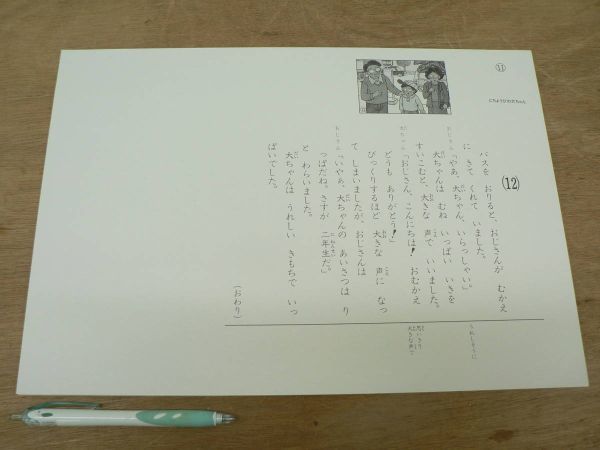 ⑪
(12)
バスを おりると、おじさんが むかえ
に きて くれて いました。
おじさん
「やあ、大ちゃん、いらっしゃい。」
大ちゃんは むね いっぱい いきを
すいこむと、大きな 声で いいました。
大ちゃん
「おじさん、こんにちは! おむかえ
どうも ありがとう!」
びっくりするほど 大きな 声に なっ
て しまいましたが、おじさんは
おじさん
「いやぁ、大ちゃんの あいさつは り
っぱだね。さすが 二年生だ。」
と わらいました。
大ちゃんは うれしい きもちで いっ
ぱいでした。
(おわり)
うれしそうに
思いきり
大きな声で